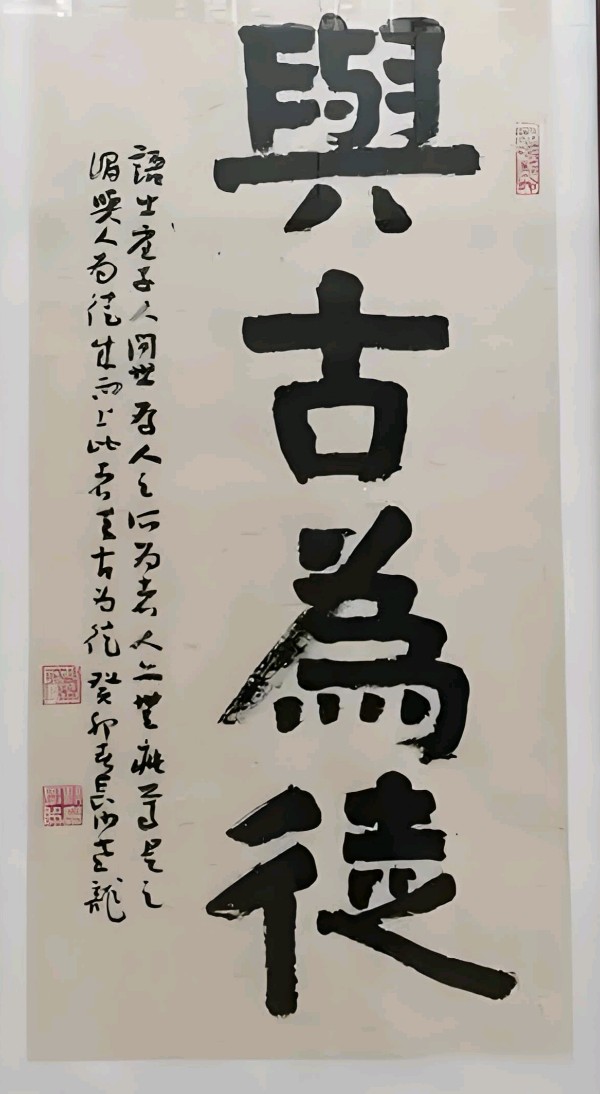 與古為徒
語出莊子人間世為人之所为者人亦無疵焉是之
謂與人为徒成而上比者与古为徒癸卯春長沙龍